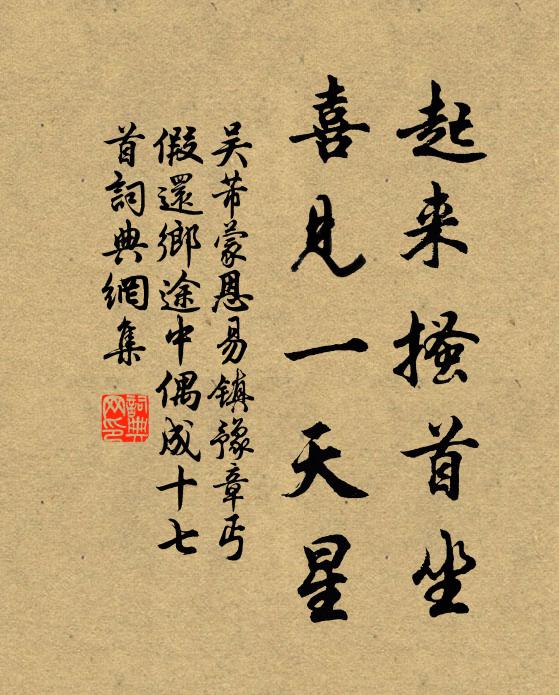 起来搔首坐
喜見一天星
吴芾蒙恩易鎮豫章丐
假還鄉途中偶成十七
首詞典網集
詞典
网印